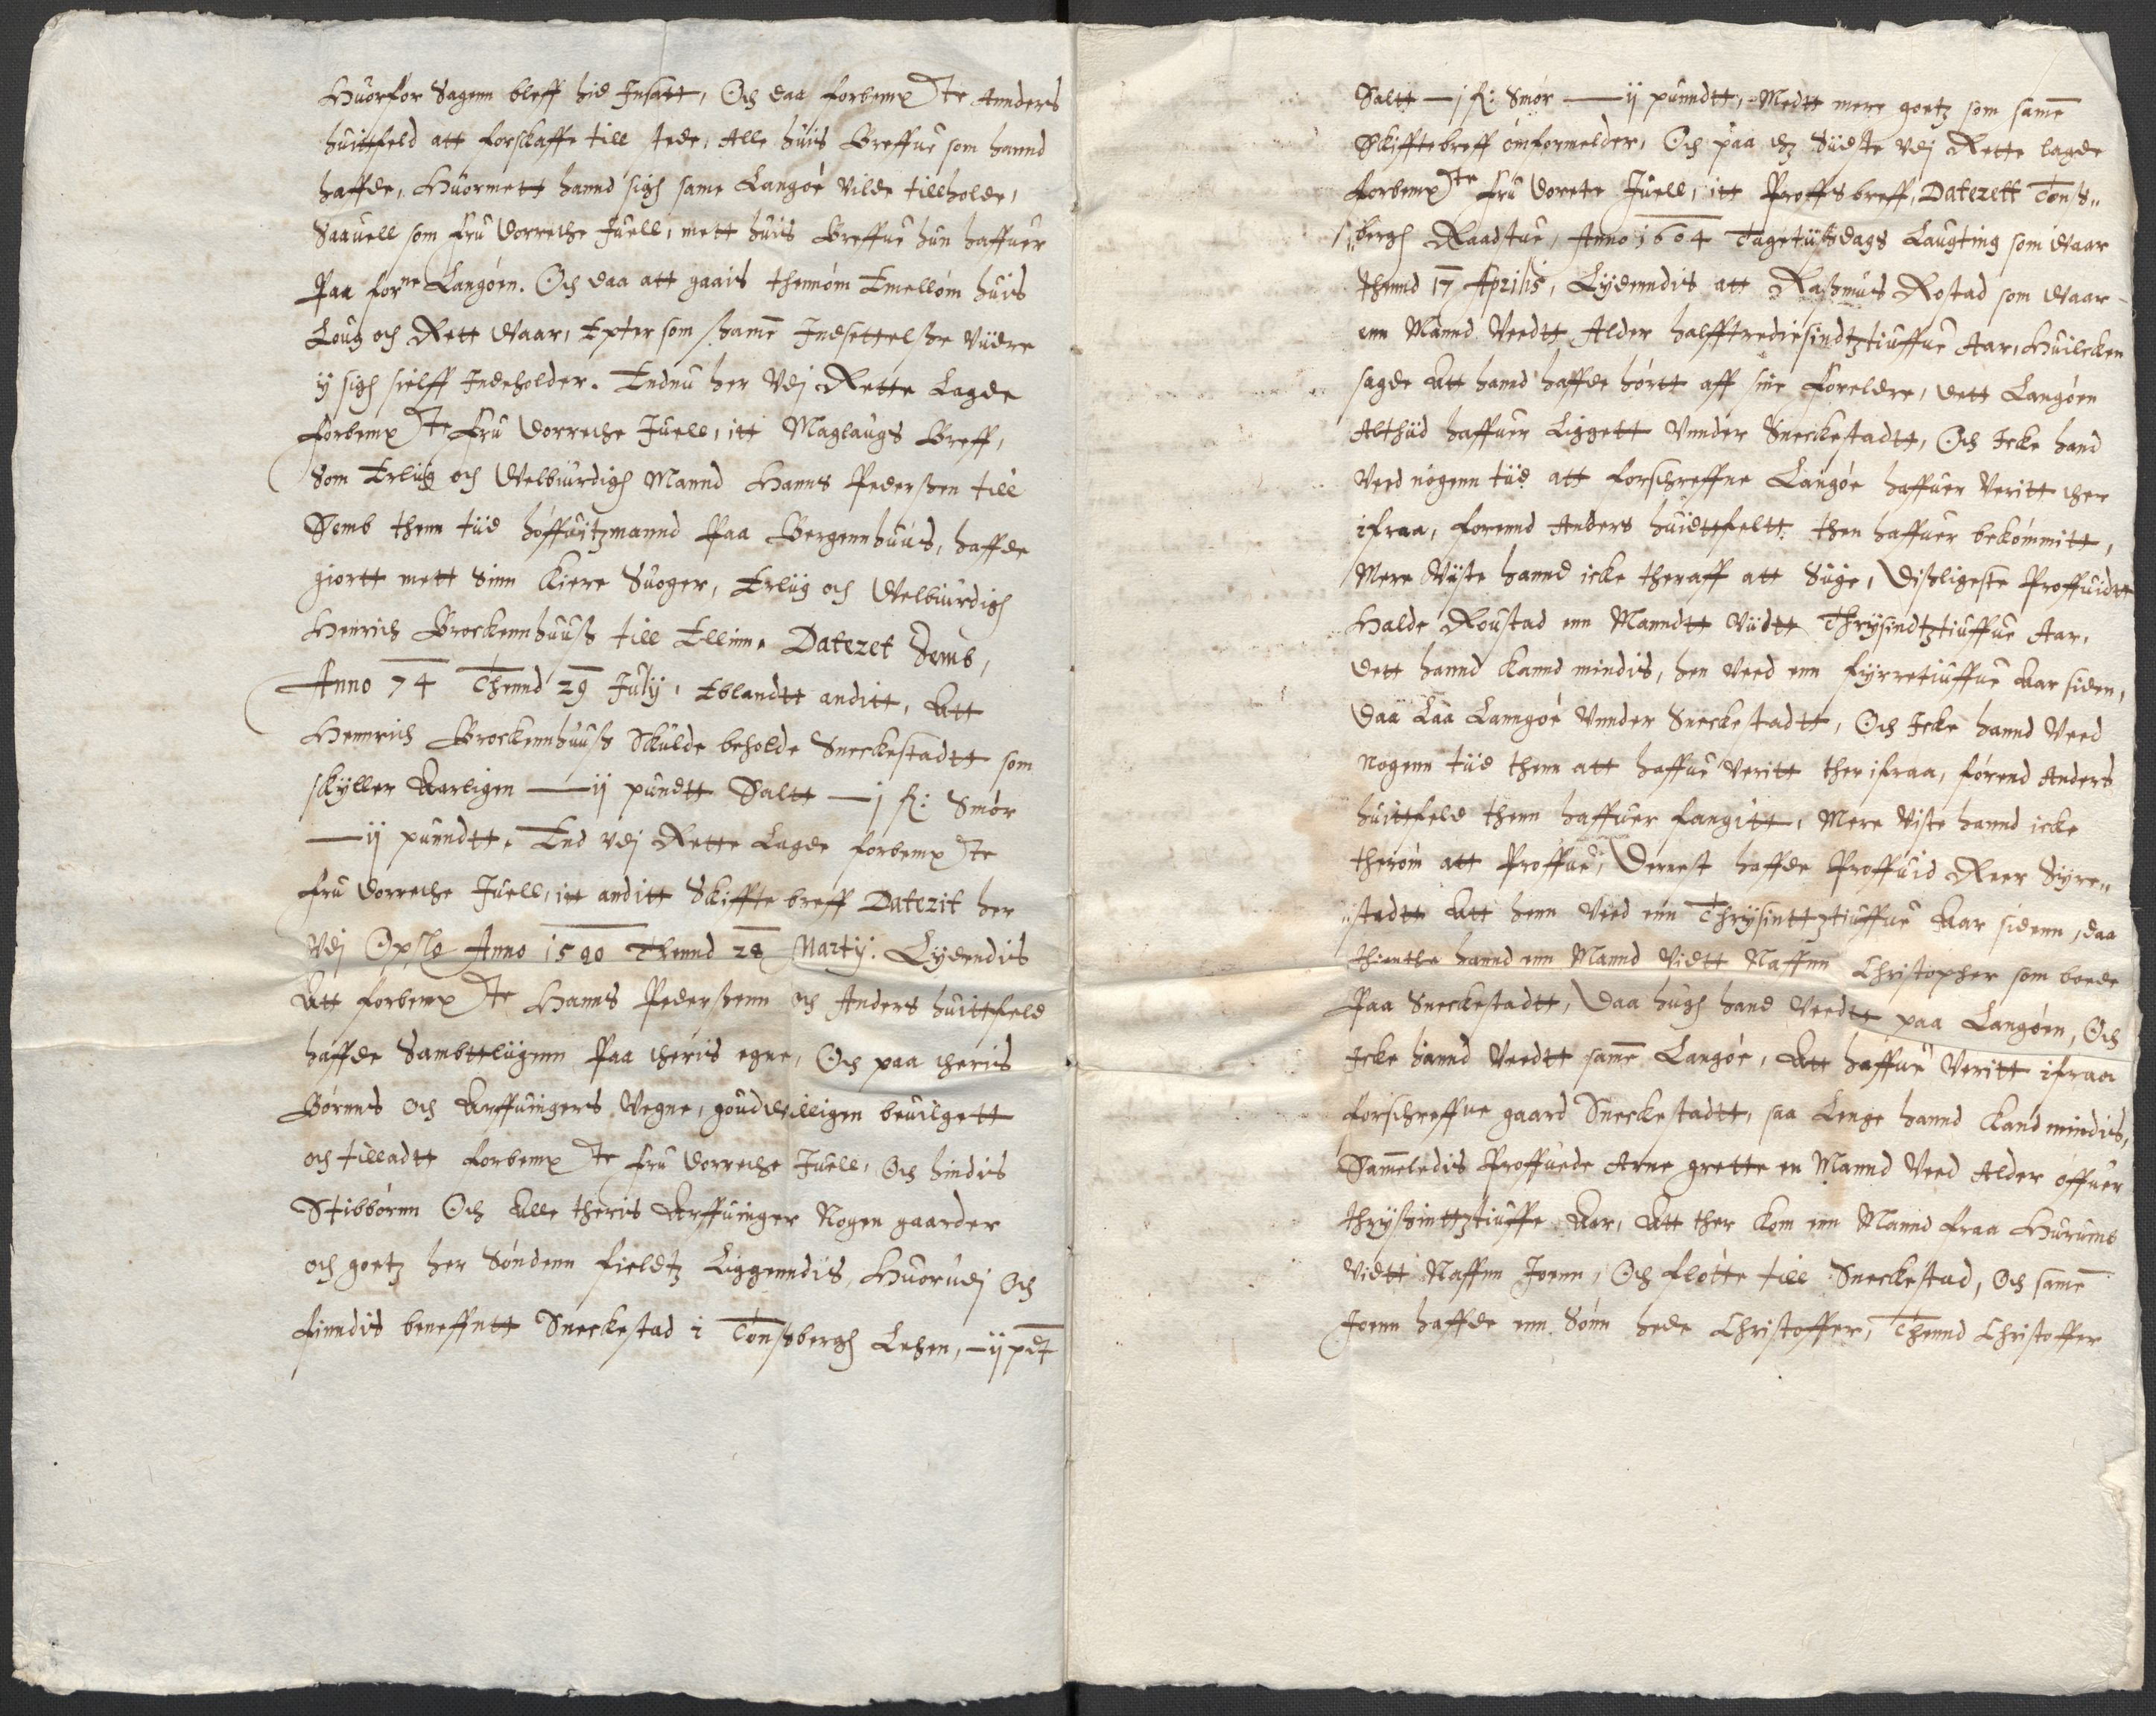 Huorfor Sagenn bleff hid Insatt, Och daa forbempte Annders
huittfeld att forskaffe till stede, Alle huis Breffue som hannd
haffde, Huormett hannd sigh same Langøe vilde tillholde,
Saauell som fru Dorrethe Juell, mett huis Breffue hun haffuer
Paa forne Langøen. Och daa att gaais thennom Emellom huis
Loug och Rett Waar, Epter som ssame Indsettelsze viidre
ij sigh sielff Indeholder. Endnu her vdj Rette Lagde
forbempte fru Dorrethe Juell, itt Maglaugs Breff,
Som Erlig och Welbiurdigh Mannd Hanns Pederszen till
Semb thenn tiid høffuitzmannd Paa Bergennhuus, haffde
giortt mett Sinn Kiere Suoger, Erlig och Welbiurdigh
Henrich Brockennhuusz till Ellinn. Datezet Semb,
Anno 74 Thennd 29 July, Eblandtt anditt, Att
Hennrich Brockennhuusz Skulde beholde Sneckestadtt som
skyller Aarligen — ij pundtt Saltt — j f: Smør
— ij punndtt. End vdj Rette Lagde forbempte
fru Dorrethe Juell, itt anditt Skiffte breff Datezit her
vdj Opslo Anno 1590 Thennd 28 Martij. Lydendis
Att forbempte Hanns Pederszenn och Anders huittfeld
haffde Sambttligenn Paa theris egne, Och paa theris
Børnns och Arffuingers Vegne, goudwilligen beuilgett
och tilladtt forbempte fru Dorrethe Juell, Och hindis
Stibbørnn Och Alle theris Arffuinger Nogen gaarder
och goetz her Søndenn fieldtz Liggenndis, Huorudj Och
finndis beneffntt Sneckestad i Tønszbergh Lehen, — ij pdt
Saltt — j f: Smør — ij punndtt, Medtt mere goetz som same
Skifftebreff omformelder, Och paa dz Siidste vdj Rette lagde
forbempte fru Dorete Juell, itt Proffs breff, Datezett Tøns„
„bergh Raadstue, Anno 1604 Tagetiiszdags Laugting som Waar
thennd 17 Aprilis, Lydenndis att Raszmus Rostad som Waar
enn Mannd Veedtt Alder halfftrediesindtztiuffue Aar, Huilcken
sagde Att hannd haffde hørtt aff sine Foreldre, dett Langøen
Altthiid haffuer Liggett Vnnder Sneckestadtt, Och Icke hand
Veed nogenn tiid att forschreffne Langøe haffuer Veritt ther
ifraa, forennd Anders huidttfeltt then haffuer bekommitt,
Mere Viste hannd icke theraff att Siige, Diszligeste Proffuidtt
Halde Roustad enn Manndtt Viidtt Thrysindtztiuffue Aar,
dett hannd Kannd mindis, hen Veed enn fyrretiuffue Aar siden,
Daa Laa Lanngøe Vnnder Sneckestadtt, Och Icke hannd Veed
Nogenn tiid thenn att haffue Veritt ther ifraa, førend Anders
huittfeld thenn haffuer fangitt, Mere Viste hannd icke
therom att Proffue, Dernest haffde Proffuid Reer Siire„
„stadtt Att henn Veed enn Thrysinttztiuffue Aar sidenn, daa
thientte hannd enn Mannd Vidtt Naffnn Christopher som boede
Paa Sneckestadtt, Daa hugh hand Veedtt paa Langøen, Och
Icke hannd Veedtt same Langøe, Att haffue Veritt ifraa
forschreffne gaard Sneckestadtt, saa Lenge hannd Kand mindis,
Sameledis Proffuede Arne grette en Mannd Veed Alder offuer
thryszinttztiuffe Aar, Att ther Kom enn Mannd fraa Hurumb
Vidtt Naffnn Joenn, Och fløtte till Sneckestad, Och same
Joenn haffde enn Sønn hede Christoffer, Thennd Christoffer